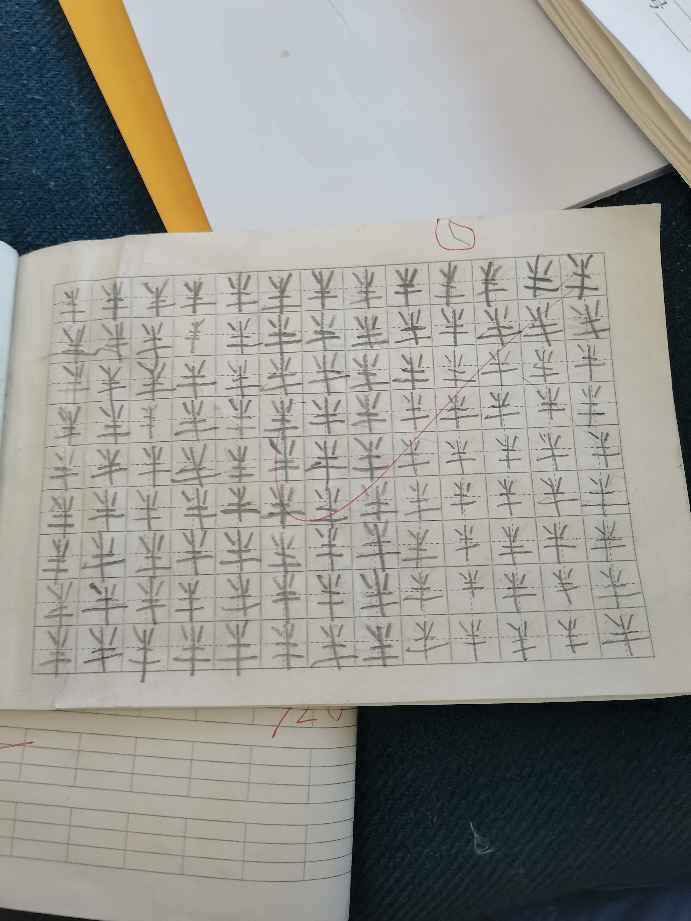 半半半半半半半半半半半半半
半半半半半半半半半半半半半
半半半半半半半半半半半半半
半半半半半半半半半半半半半
半半半半半半半半半半半半半
半半半半半半半半半半半半半
半半半半半半半半半半半半半
半半半半半半半半半半半半半
半半半半半半半半半半半半半